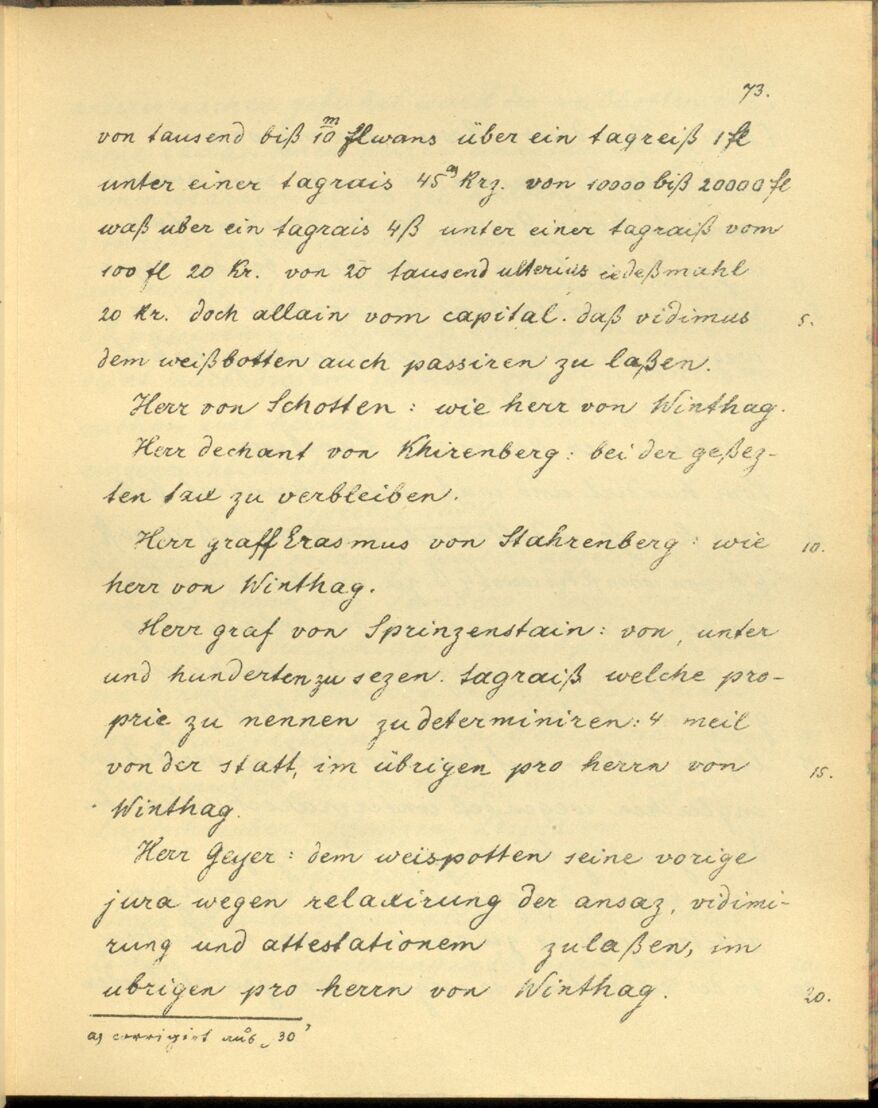 73.
von tausend biß 10^m fl wans über ein tagreiß 1 fl
unter einer tagrais 45^a) Krz. von 10000 biß 20000 fl
waß uber ein tagrais 4ß unter einer tagraiß vom
100 fl 20 Kr. von 20 tausend ulterius iedeßmahl
20 Kr. doch allain vom capital. daß vidimus 5.
dem weißbotten auch passiren zu laßen.
Herr von Schotten: wie herr von Winthag.
Herr dechant von Khirenberg: bei der geßez-
ten tax zu verbleiben.
Herr graff Erasmus von Stahrenberg: wie 10.
herr von Winthag.
Herr graf von Sprinzenstain: von, unter
und hunderten zu sezen. tagraiß welche pro-
prie zu nennen zu determiniren: 4 meil
von der statt, im übrigen pro herrn von 15.
Winthag.
Herr Geyer: dem weispotten seine vorige
jura wegen relaxirung der ansaz, vidimi-
rung und attestationem zulaßen, im
ubrigen pro herrn von Winthag. 20.
a) corrigirt aus „30"